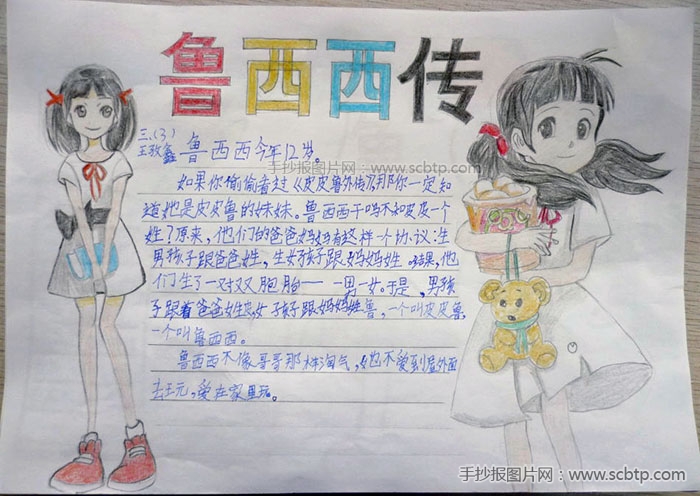 手抄报图片网:www.scbtp.com
鲁西西传
三、(3)
王孜鑫
鲁西西今年12岁。
如果你偷偷看过《皮皮鲁外传》那你一定知
道她是皮皮鲁的妹妹。鲁西西干吗不和皮皮一个
姓了原来,他们的爸爸妈妈有这样一个协议:生
男孩子跟爸爸姓,生女孩子跟妈妈姓。结果,他
们生了一对双胞胎——一男一女。于是,男孩
子跟着爸爸姓皮,女孩子跟妈妈姓鲁,一个叫皮皮鲁,
一个叫鲁西西。
鲁西西不像哥哥那样淘气,她不爱到屋外面
去玩,爱在家里玩。
手抄报图片网:www.scbtp.com